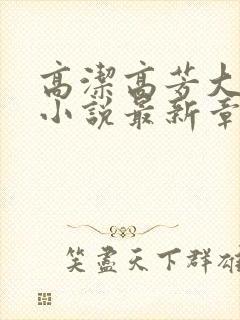 高潔高芳大
小說最新章
笑盡天下群雄